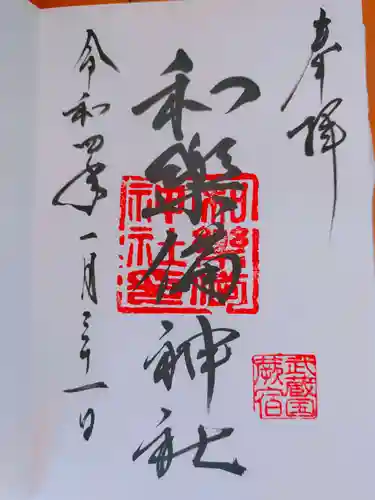 奉拝
和樂備神社
和樂備神社
武蔵国
蕨宿
令和四年一月三十一日